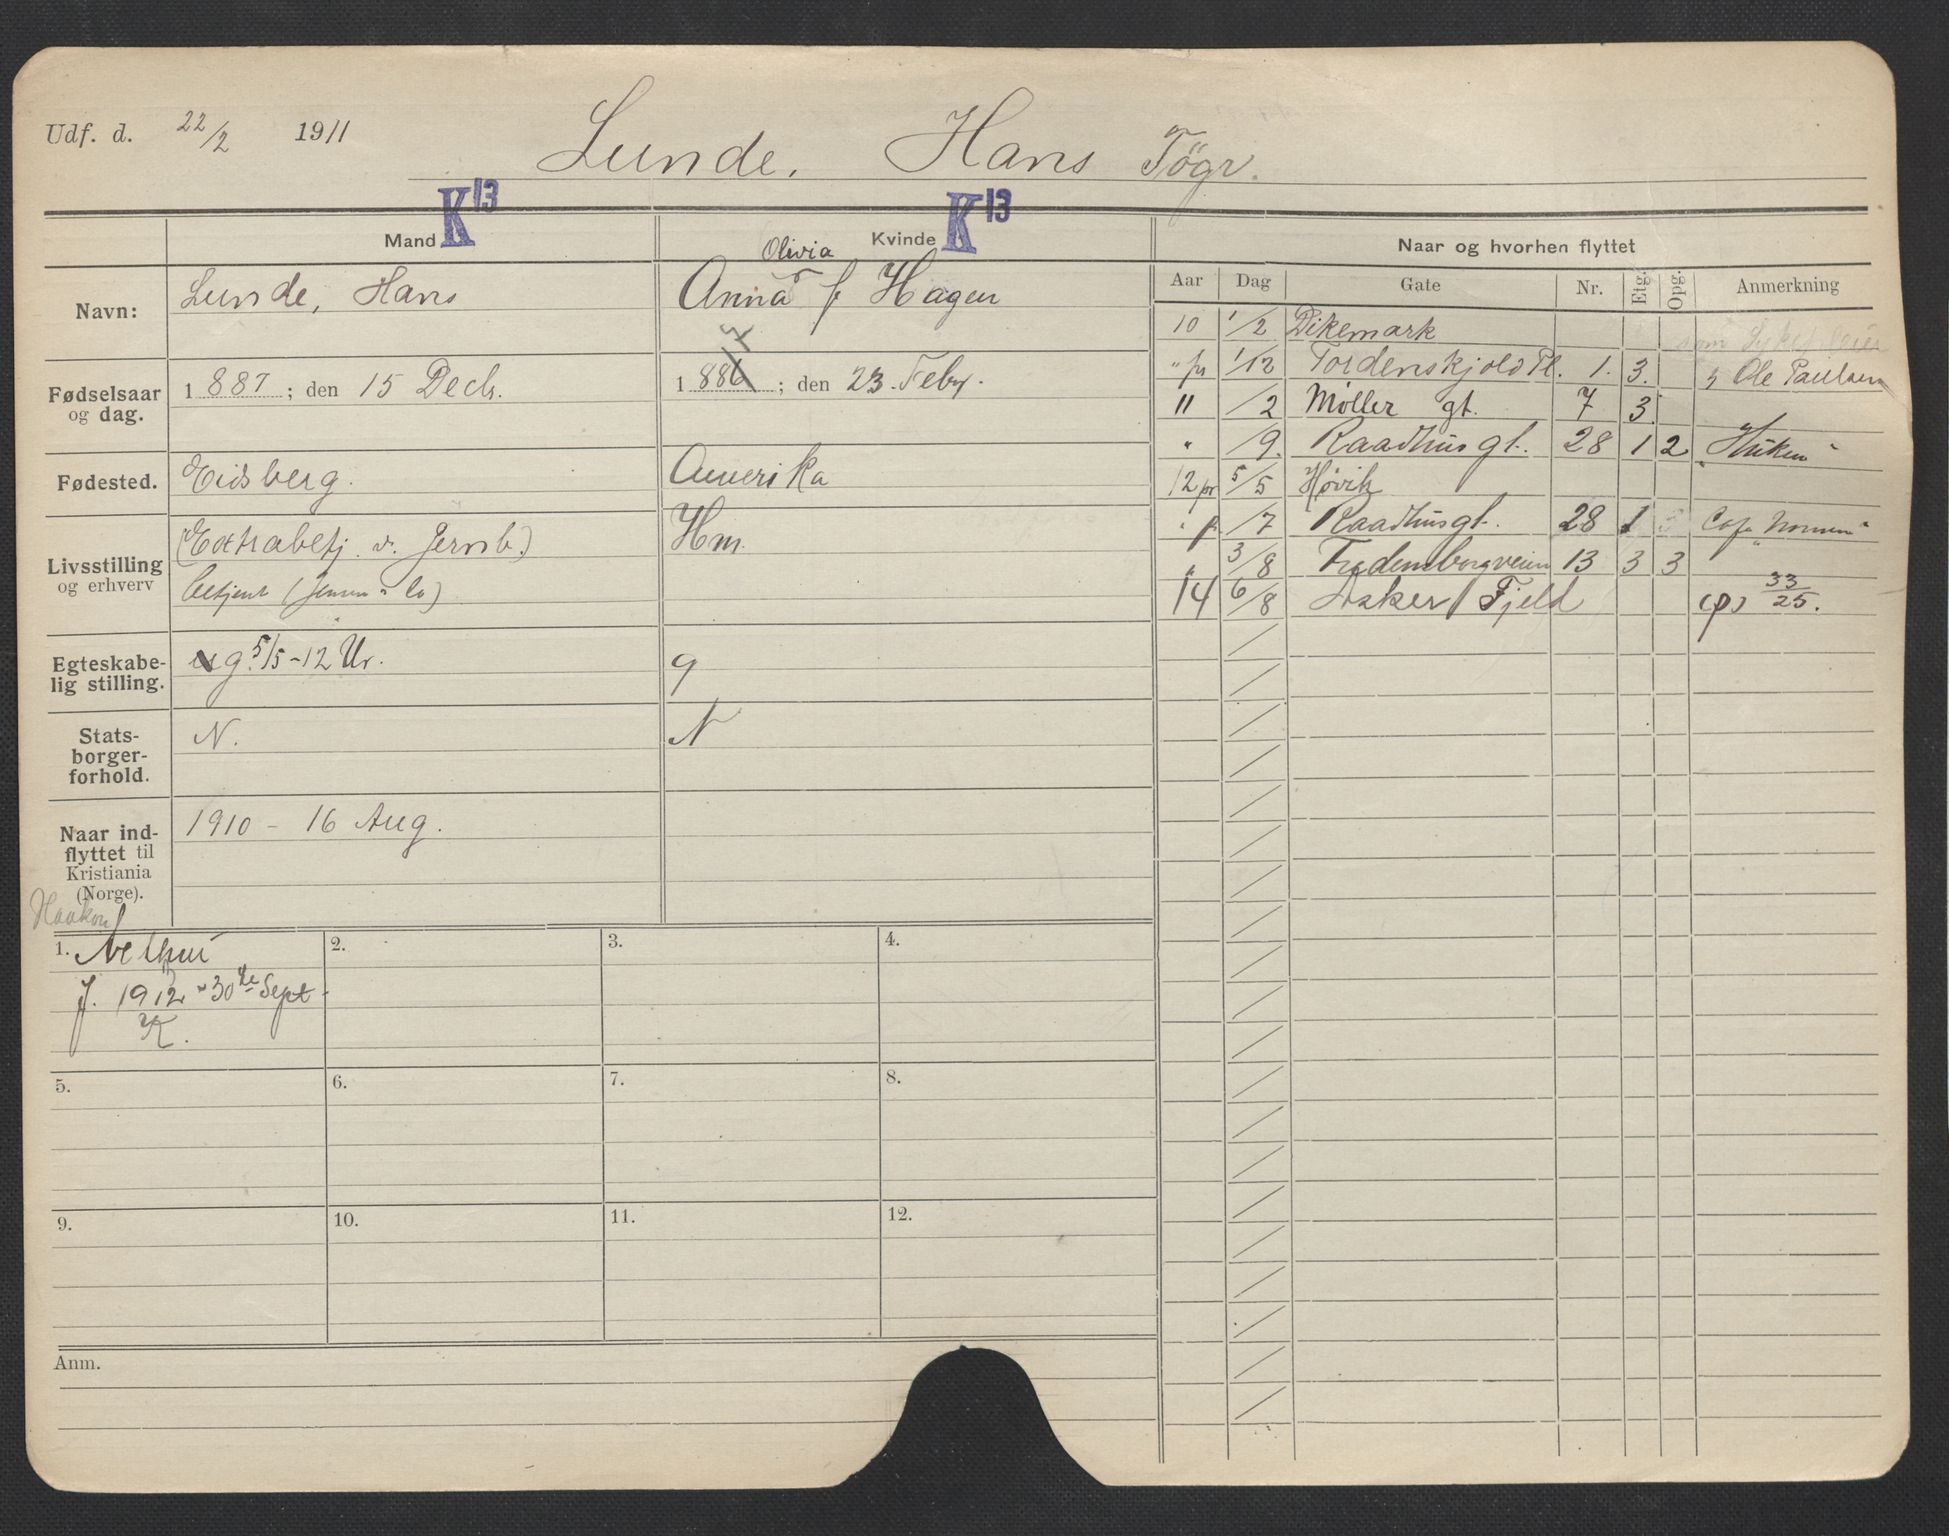 Udf. d. 22/2 1911
Lunde, Hans Tögr.
K13 K13
Mand Kvinde Naar og hvorhen flyttet
Aar Dag Gate Nr. Etg. Opg. Anmerkning
Navn: Lunde, Hans
Olivia
Anna f Hagen
Fødselsaar og dag. 1887; den 15 Decb.
1886 7; den 23. Feby.
Fødested. Eidsberg.
Amerika
Livsstilling og erhverv
(Extrabetj. v. Jernb.)
betjent (Jensen & Co)
Hm.
Egteskabelig stilling. g. 5/5-12 Ur.
g
Statsborgerforhold. N.
N
Naar indflyttet til Kristiania (Norge).
1910 - 16 Aug.
10 1/2 Dikemark som Sykepleier
" pr 1/12 Tordenskjold Pl. 1. 3. Ole Paulsen
11 /2 Møller gt. 7 3
" /9. Raadhusgt. 28 1 2
12 pr 5/5 Høvik
" p /7 Raadhusgt. 28 1 3 Cafe
" 3/8 Fredensborgveien 13 3 3
14 6/8 Asker / Fjeld (p) 33/25.
Haakon
1. Arthur
f. 1912 - 30de Sept.
K.
2.
3.
4.
5.
6.
7.
8.
9.
10.
11.
12.
Anm.